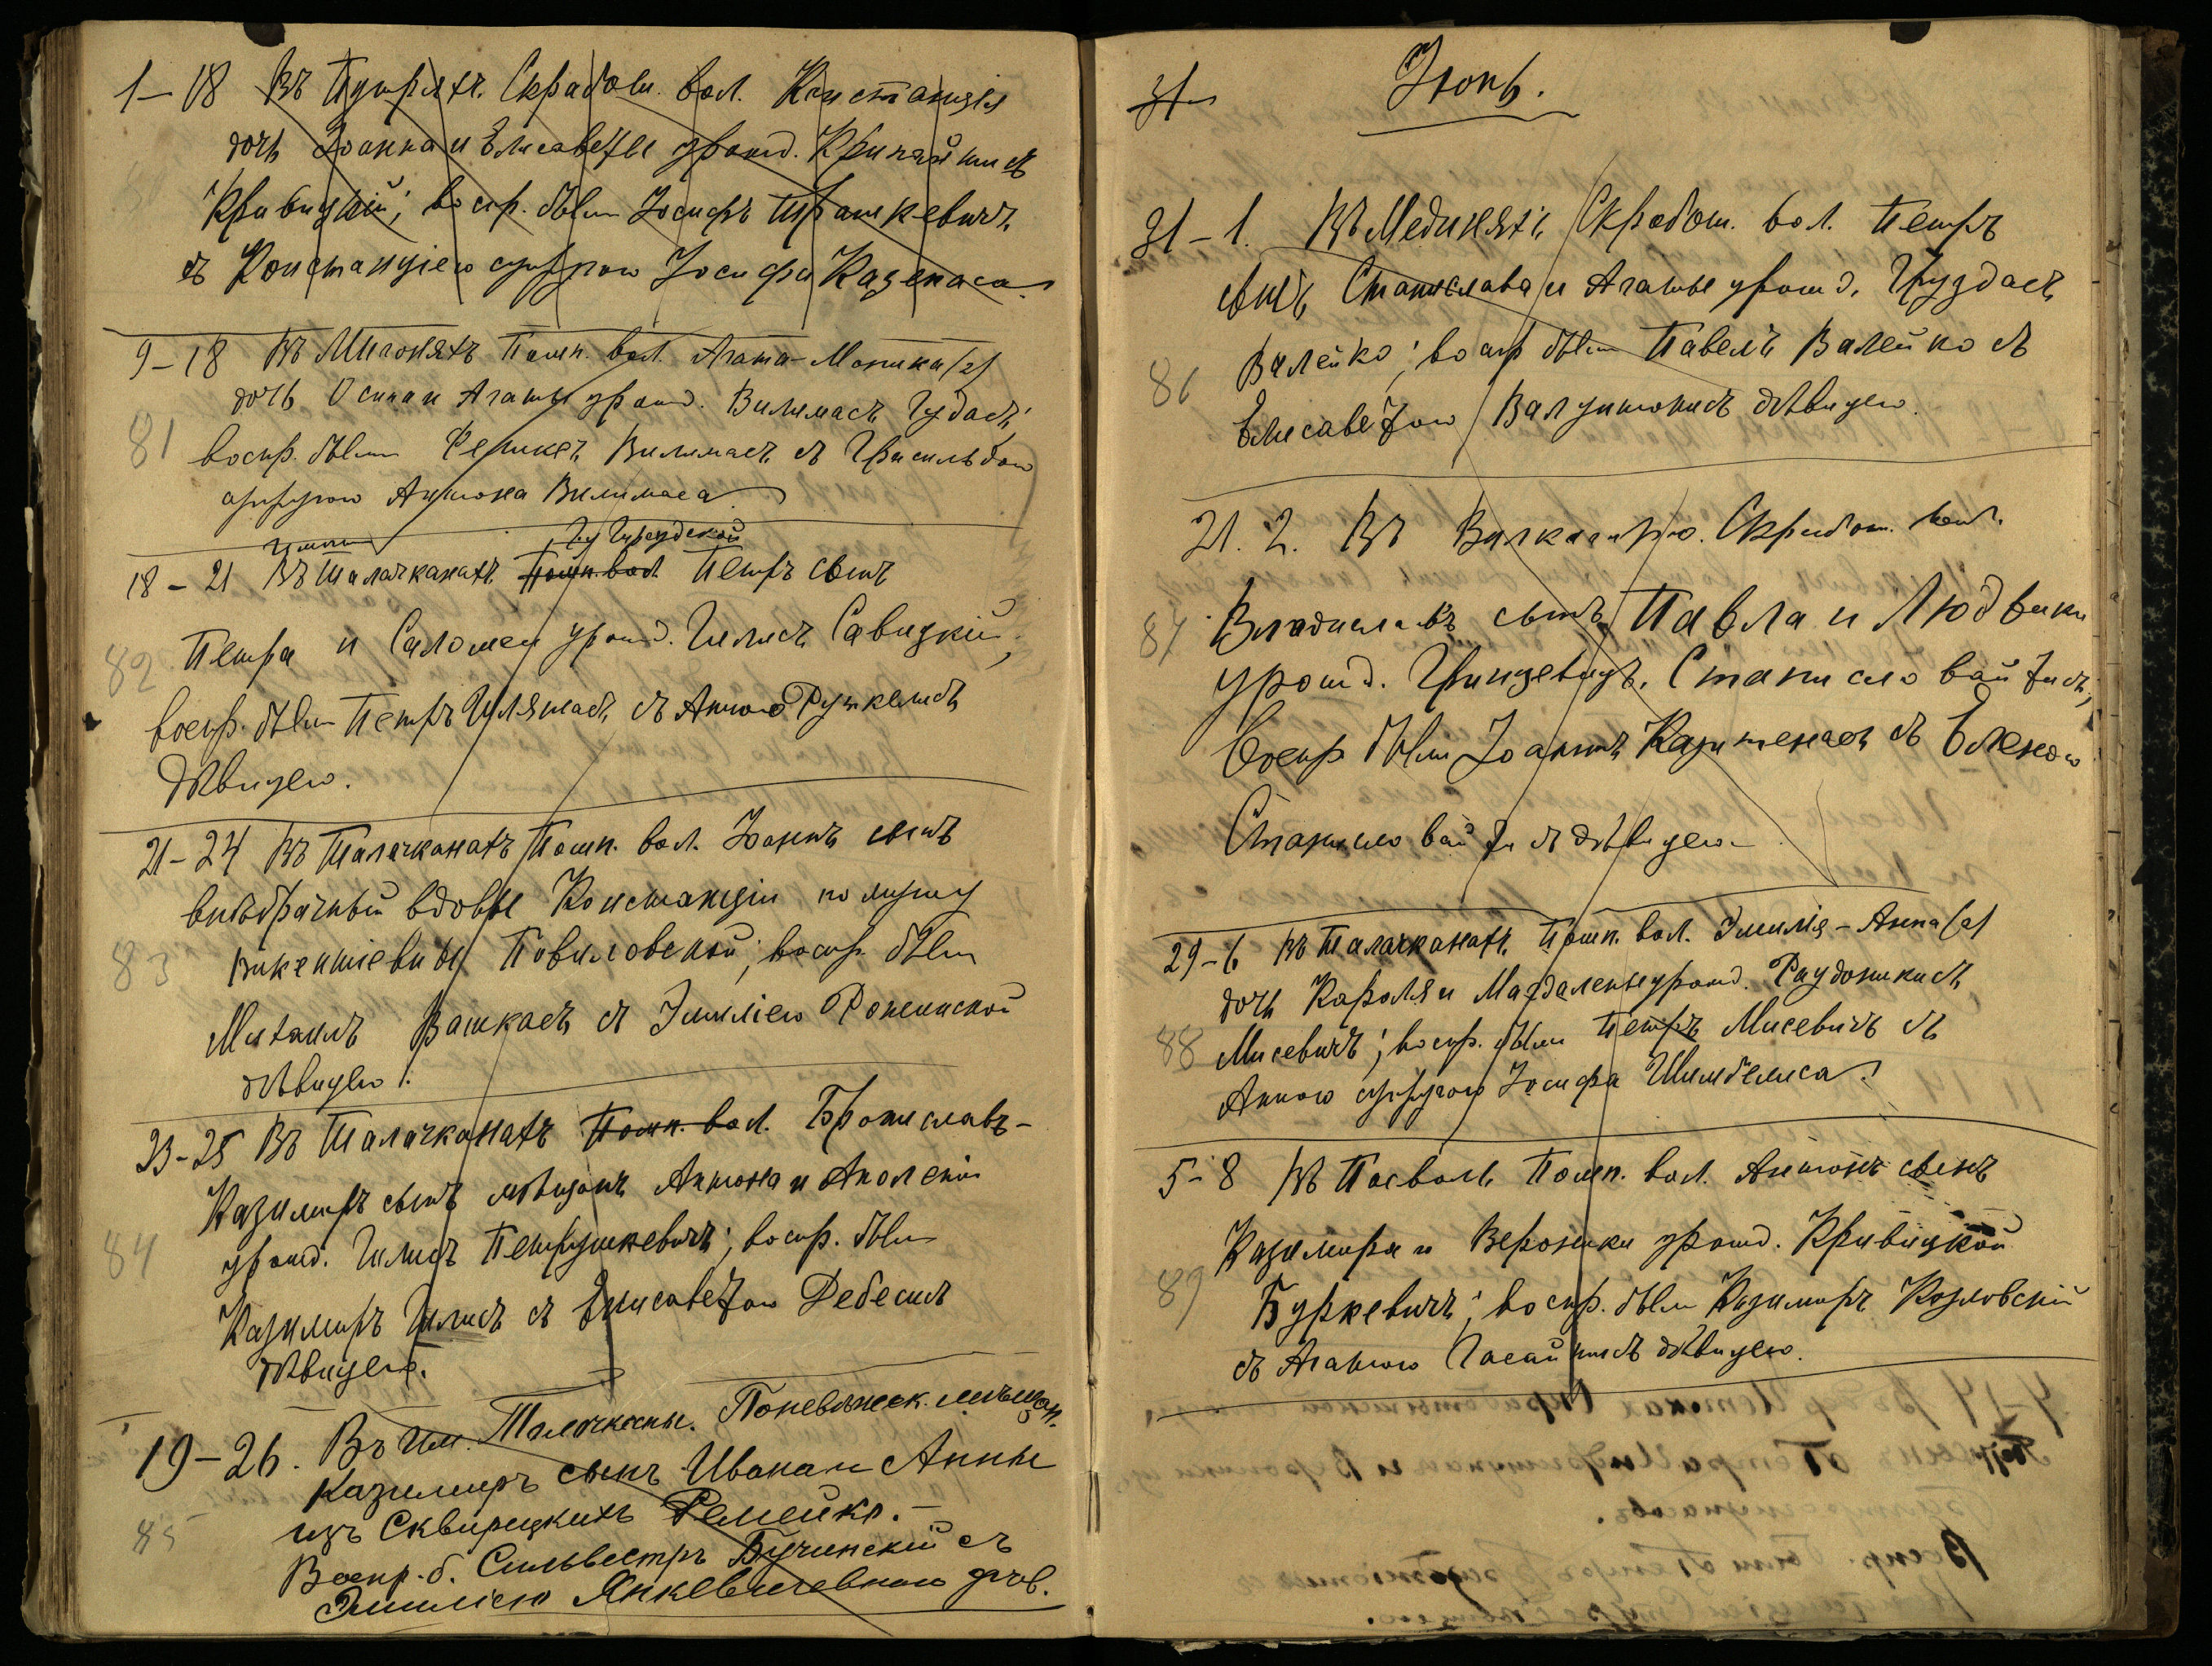 1–18 Въ Скрабош. вол. Констанція
дочь Іоанна и Елисаветы урожд.
Кривицкій; воспр. были Іосифъ
съ Констанціею супругою Іосифа Казенаса.
9–18 Въ Мигоняхъ Помп. вол. Агата-Моника (2)
дочь Осипа и Агаты урожд. Вилимасъ Гудасъ;
81
воспр. были Феликсъ Вилимасъ съ Гризельдою
супругою Антона Вилимаса
18–21 Въ Талачканахъ Помп. вол. Петръ сынъ
82
Петра и Саломеи урожд. Гилисъ Савицкій;
воспр. были Петръ съ Анною
дѣвицею.
21–24 Въ Талачканахъ Помп. вол. Іоаннъ сынъ
внѣбрачный вдовы Констанціи по мужу
83
Викентіевны Повиловской; воспр. были
Михаилъ Вашкасъ съ Эмиліею
дѣвицею.
23–25 Въ Талачканахъ Помп. вол. Брониславъ-
Казимиръ сынъ мѣщанъ Антона и Аполеніи
84
урожд. Гилисъ Петрушкевичъ; воспр. были
Казимиръ Гилисъ съ Елисаветою Дебесисъ
дѣвицею.
19–26. Въ Им. Талачканы. Поневѣжск. мѣщан.
Казимиръ сынъ Ивана и Анны
85
изъ Сквирецкихъ Ремейко.–
Воспр. б. Сильвестръ Бучинскій съ
Эмиліею Янкевичевною дѣв.
31 Іюнь.
31–1. Въ Мединяхъ Скрабош. вол. Петръ
сынъ Станислава и Агаты урожд. Груздасъ
86
Валейко; воспр были Павелъ Валейко съ
Елисаветою дѣвицею.
21. 2. Въ Скрабош. вол.
87
Владиславъ сынъ Павла и Людвики
урожд. Гринцевичъ, Станиславайтисъ,
воспр были Іоаннъ съ Еленою
дѣвицею
29–6 Въ Талачканахъ Помп. вол. Эмилія-Анна (2)
дочь Кароля и Магдалены урожд. Раудоникисъ
88
Мисевичъ; воспр. были Петръ Мисевичъ съ
Анною супругою Іосифа Шимбелиса.
5–8 Въ Посволь Помп. вол. Антонъ сынъ
Казимира и Вероники урожд. Кривицкой
89
Буркевичъ; воспр. были Казимиръ Козловскій
съ Агатою дѣвицею.